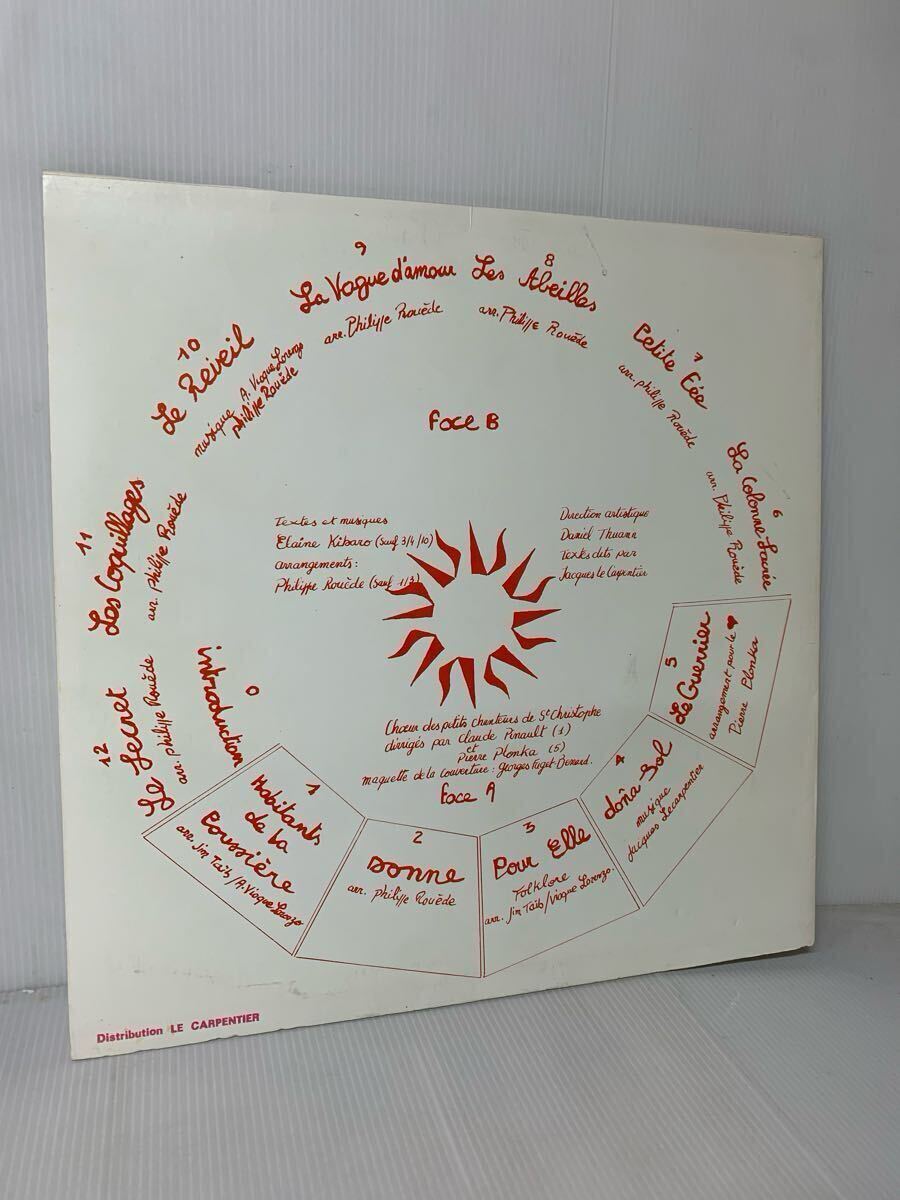 9
La Vague d'amour
arr. Philippe Rouède
8
Les Abeilles
arr. Philippe Rouède
7
Petite Fée
arr. philippe Rouède
6
La Colonne Sacrée
arr. Philippe Rouède
10
Le Réveil
musique A. Viaque Lorenzo
philippe Rouède
11
Les Coquillages
arr. philippe Rouède
12
Le Secret
arr. philippe Rouède
Face B
Textes et musiques
Elaine Kibaro (sauf 3/4/10)
arrangements:
Philippe Rouède (sauf 1/3)
Direction artistique
Daniel Thuann
textes dits par
Jacques le Carpentier
0
introduction
Chœur des petits chanteurs de St Christophe
dirigés par Claude Pinault (1)
et
Pierre Plonka (5)
maquette de la couverture:
Face A
1
Habitants
de la
Poussière
arr. Jim Taïb/A.Viaque Lorenzo
2
Donne
arr. philippe Rouède
3
Pour Elle
Folklore
arr. Jim Taïb/Viaque Lorenzo.
4
doña Sol
musique
Jacques Lecarpentier
5
Le Guerrier
arrangement pour le ♥
Pierre Plonka
Distribution LE CARPENTIER